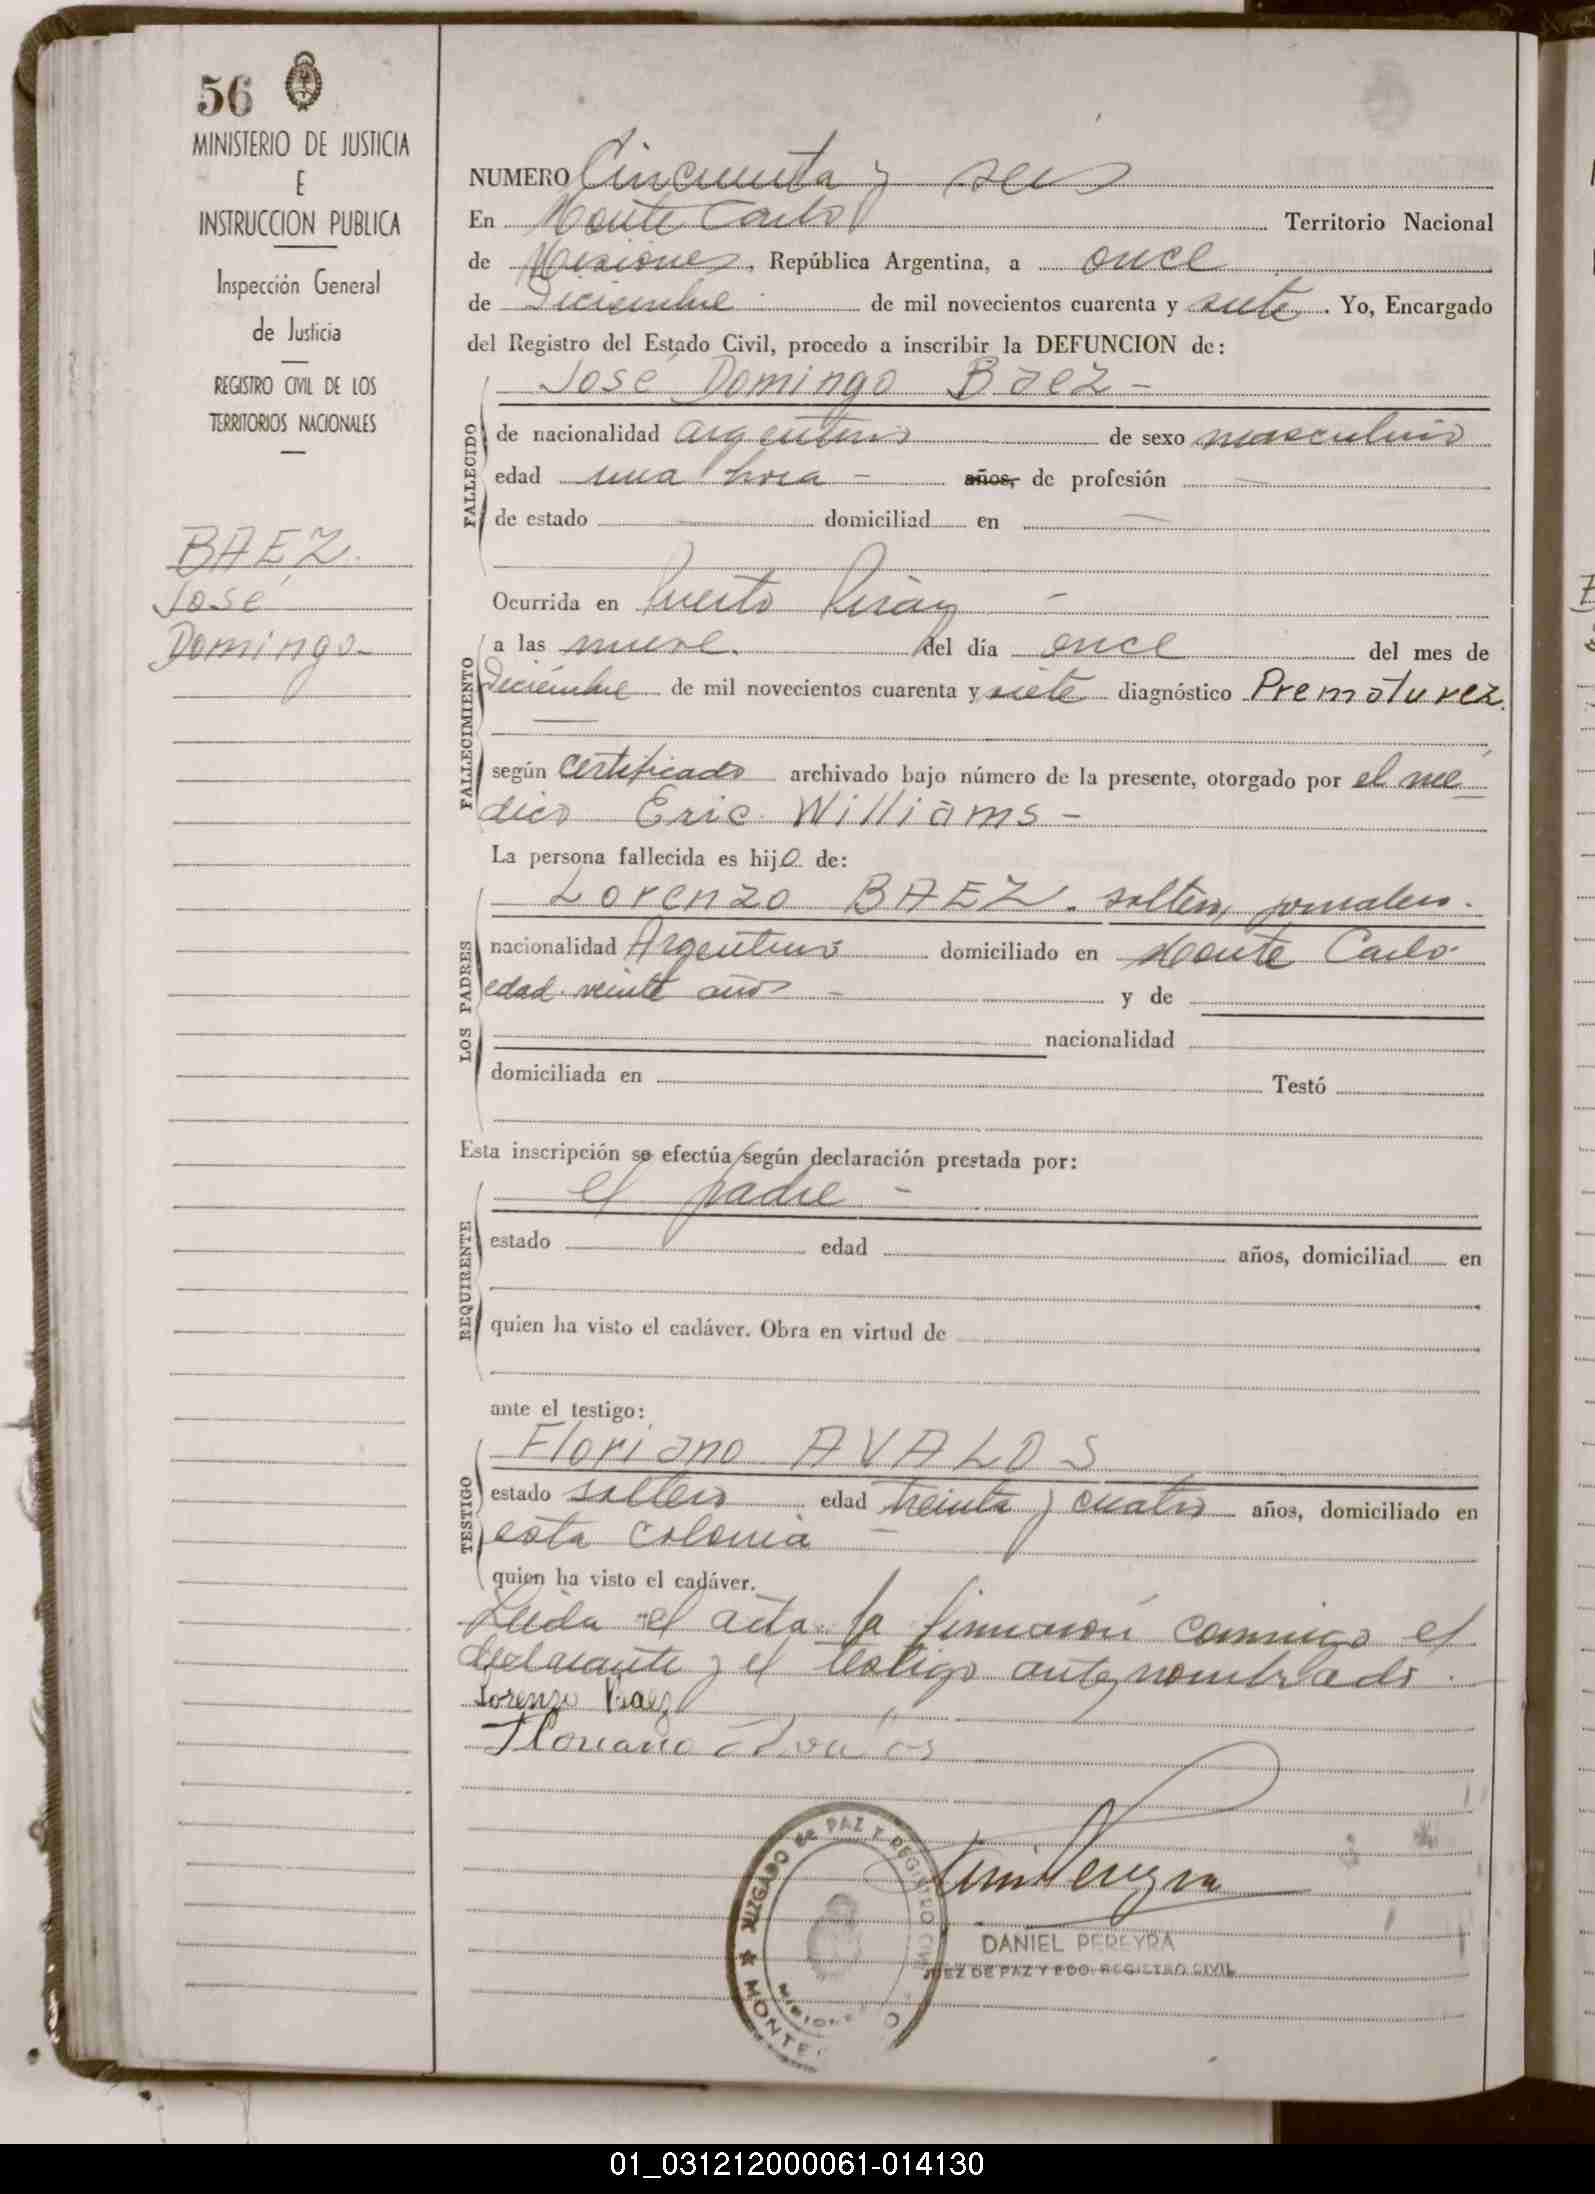 56
MINISTERIO DE JUSTICIA
E
INSTRUCCION PUBLICA
Inspección General
de Justicia
REGISTRO CIVIL DE LOS
TERRITORIOS NACIONALES
BAEZ.
José
Domingo-
NUMERO Cincuenta y seis
En Monte Carlo Territorio Nacional
de Misiones, República Argentina, a once
de Diciembre de mil novecientos cuarenta y siete. Yo, Encargado
del Registro del Estado Civil, procedo a inscribir la DEFUNCION de:
José Domingo Baez -
FALLECIDO
de nacionalidad argentino de sexo masculino
edad una hora - años, de profesión —
de estado — domiciliad en —
Ocurrida en Puerto Piray -
FALLECIMIENTO
a las nueve. del día once del mes de
Diciembre de mil novecientos cuarenta y siete diagnóstico Prematurez.
según certificado archivado bajo número de la presente, otorgado por el mé-
dico Eric Williams -
La persona fallecida es hijo de:
LOS PADRES
Lorenzo BAEZ. soltero, jornalero.
nacionalidad Argentino domiciliado en Monte Carlo
edad veinte años - y de
nacionalidad
domiciliada en Testó
Esta inscripción se efectúa según declaración prestada por:
REQUIRENTE
el padre -
estado edad años, domiciliad en
quien ha visto el cadáver. Obra en virtud de
ante el testigo:
TESTIGO
Floriano AVALOS
estado soltero edad treinta y cuatro años, domiciliado en
esta colonia -
quien ha visto el cadáver.
Leida el acta la firmaron conmigo el
declarante y el testigo antes nombrado.
Lorenzo Baez
Floriano Avalos
JUZGADO DE PAZ Y REGISTRO CIVIL
MONTE C
MISIONES
DANIEL PEREYRA
JUEZ DE PAZ Y EDO. REGISTRO CIVIL
01_031212000061-014130